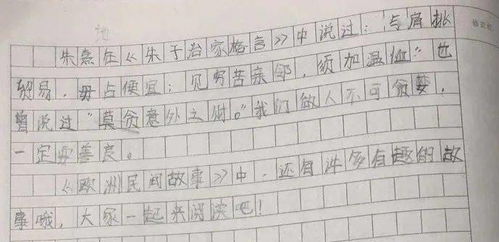 地
朱熹在《朱子治家格言》中说过：“与肩挑
贸易，毋占便宜；见穷苦亲邻，须加温恤”也
曾说过“莫贪意外之财。”我们做人不可贪婪，
一定要善良。
《欧洲民间故事》中，还有许多有趣的故
事哦，大家一起来阅读吧！